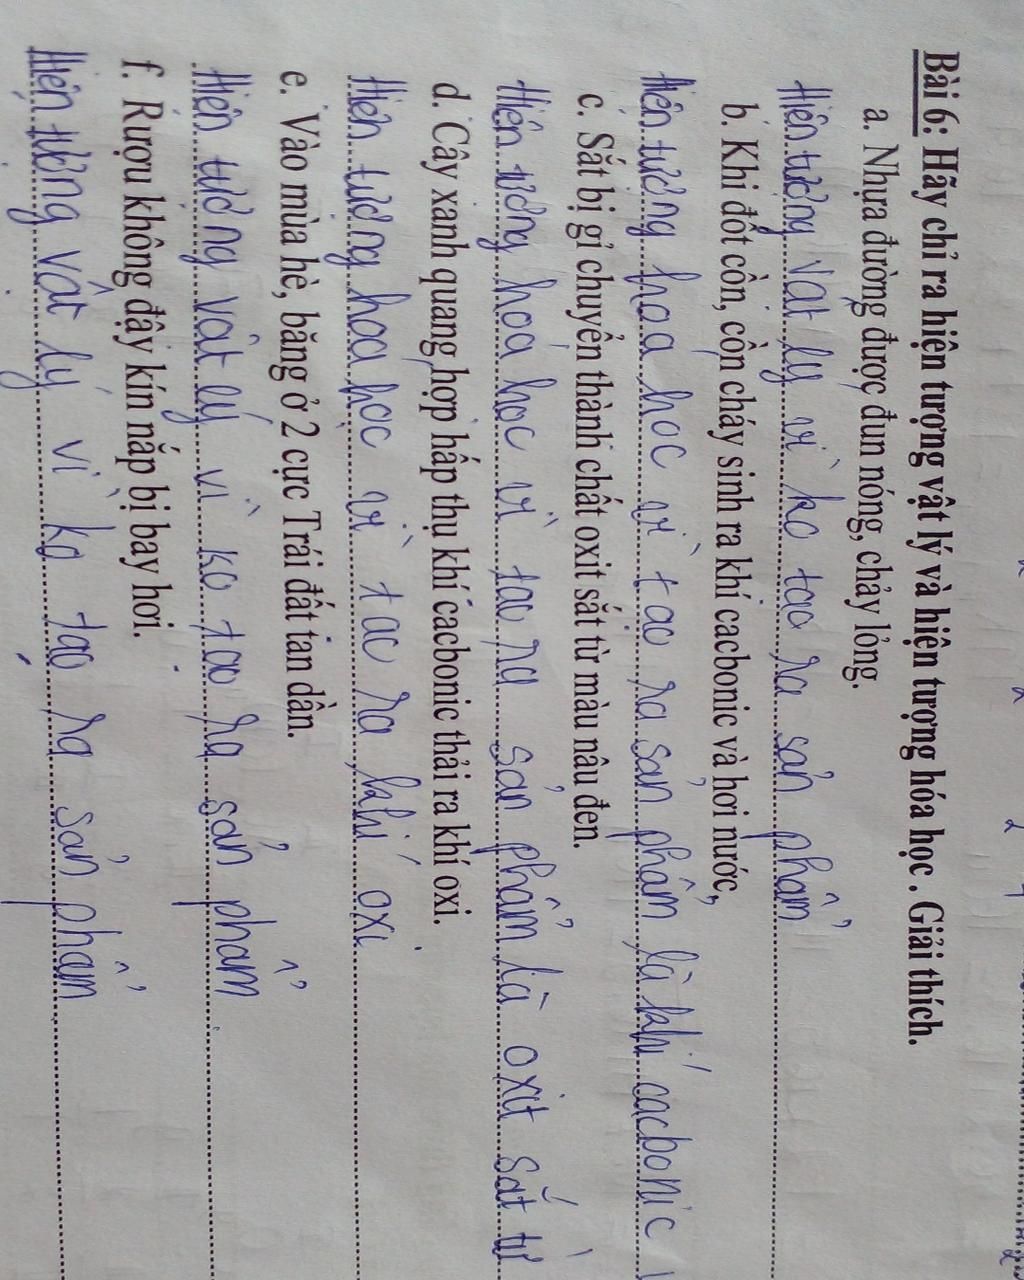 Bài 6: Hãy chỉ ra hiện tượng vật lý và hiện tượng hóa học . Giải thích.
a. Nhựa đường được đun nóng, chảy lỏng.
Hiện tượng vật lý vì ko tạo ra sản phẩm
b. Khi đốt cồn, cồn cháy sinh ra khí cacbonic và hơi nước,
Hiện tượng hoá học vì tạo ra sản phẩm là khí cacbonic
c. Sắt bị gỉ chuyển thành chất oxit sắt từ màu nâu đen.
Hiện tượng hoá học vì tạo ra sản phẩm là oxit sắt từ
d. Cây xanh quang hợp hấp thụ khí cacbonic thải ra khí oxi.
Hiện tượng hoá học vì tạo ra khí oxi
e. Vào mùa hè, băng ở 2 cực Trái đất tan dần.
Hiện tượng vật lý vì ko tạo ra sản phẩm.
f. Rượu không đậy kín nắp bị bay hơi.
Hiện tượng vật lý vì ko tạo ra sản phẩm